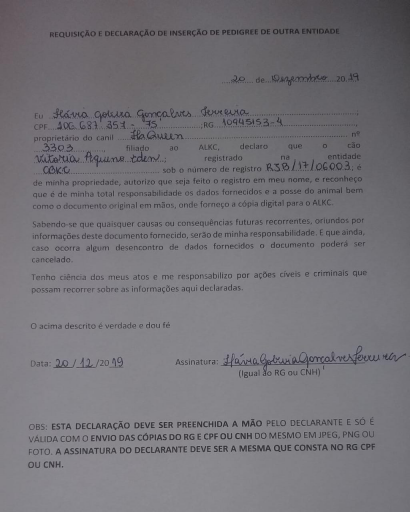 REQUISIÇÃO E DECLARAÇÃO DE INSERÇÃO DE PEDIGREE DE OUTRA ENTIDADE
20 de Dezembro 2019
Eu Flávia Gonçalves Ferreira
CPF 106 687 357 - 75 RG 10945153-4
proprietário do canil FlaQueen nº
3303 filiado ao ALKC, declaro que o cão
Vutoria Aquino Eden registrado na entidade
CBKC sob o número de registro RJB/17/06003, é
de minha propriedade, autorizo que seja feito o registro em meu nome, e reconheço
que é de minha total responsabilidade os dados fornecidos e a posse do animal bem
como o documento original em mãos, onde forneço a cópia digital para o ALKC.
Sabendo-se que quaisquer causas ou consequências futuras recorrentes, oriundos por
informações deste documento fornecido, serão de minha responsabilidade. E que ainda,
caso ocorra algum desencontro de dados fornecidos o documento poderá ser
cancelado.
Tenho ciência dos meus atos e me responsabilizo por ações cíveis e criminais que
possam recorrer sobre as informações aqui declaradas.
O acima descrito é verdade e dou fé
Data: 20/12/2019 Assinatura: Flávia Gonçalves Ferreira
(Igual ao RG ou CNH)
OBS: ESTA DECLARAÇÃO DEVE SER PREENCHIDA A MÃO PELO DECLARANTE E SÓ É
VÁLIDA COM O ENVIO DAS CÓPIAS DO RG E CPF OU CNH DO MESMO EM JPEG, PNG OU
FOTO. A ASSINATURA DO DECLARANTE DEVE SER A MESMA QUE CONSTA NO RG CPF
OU CNH.